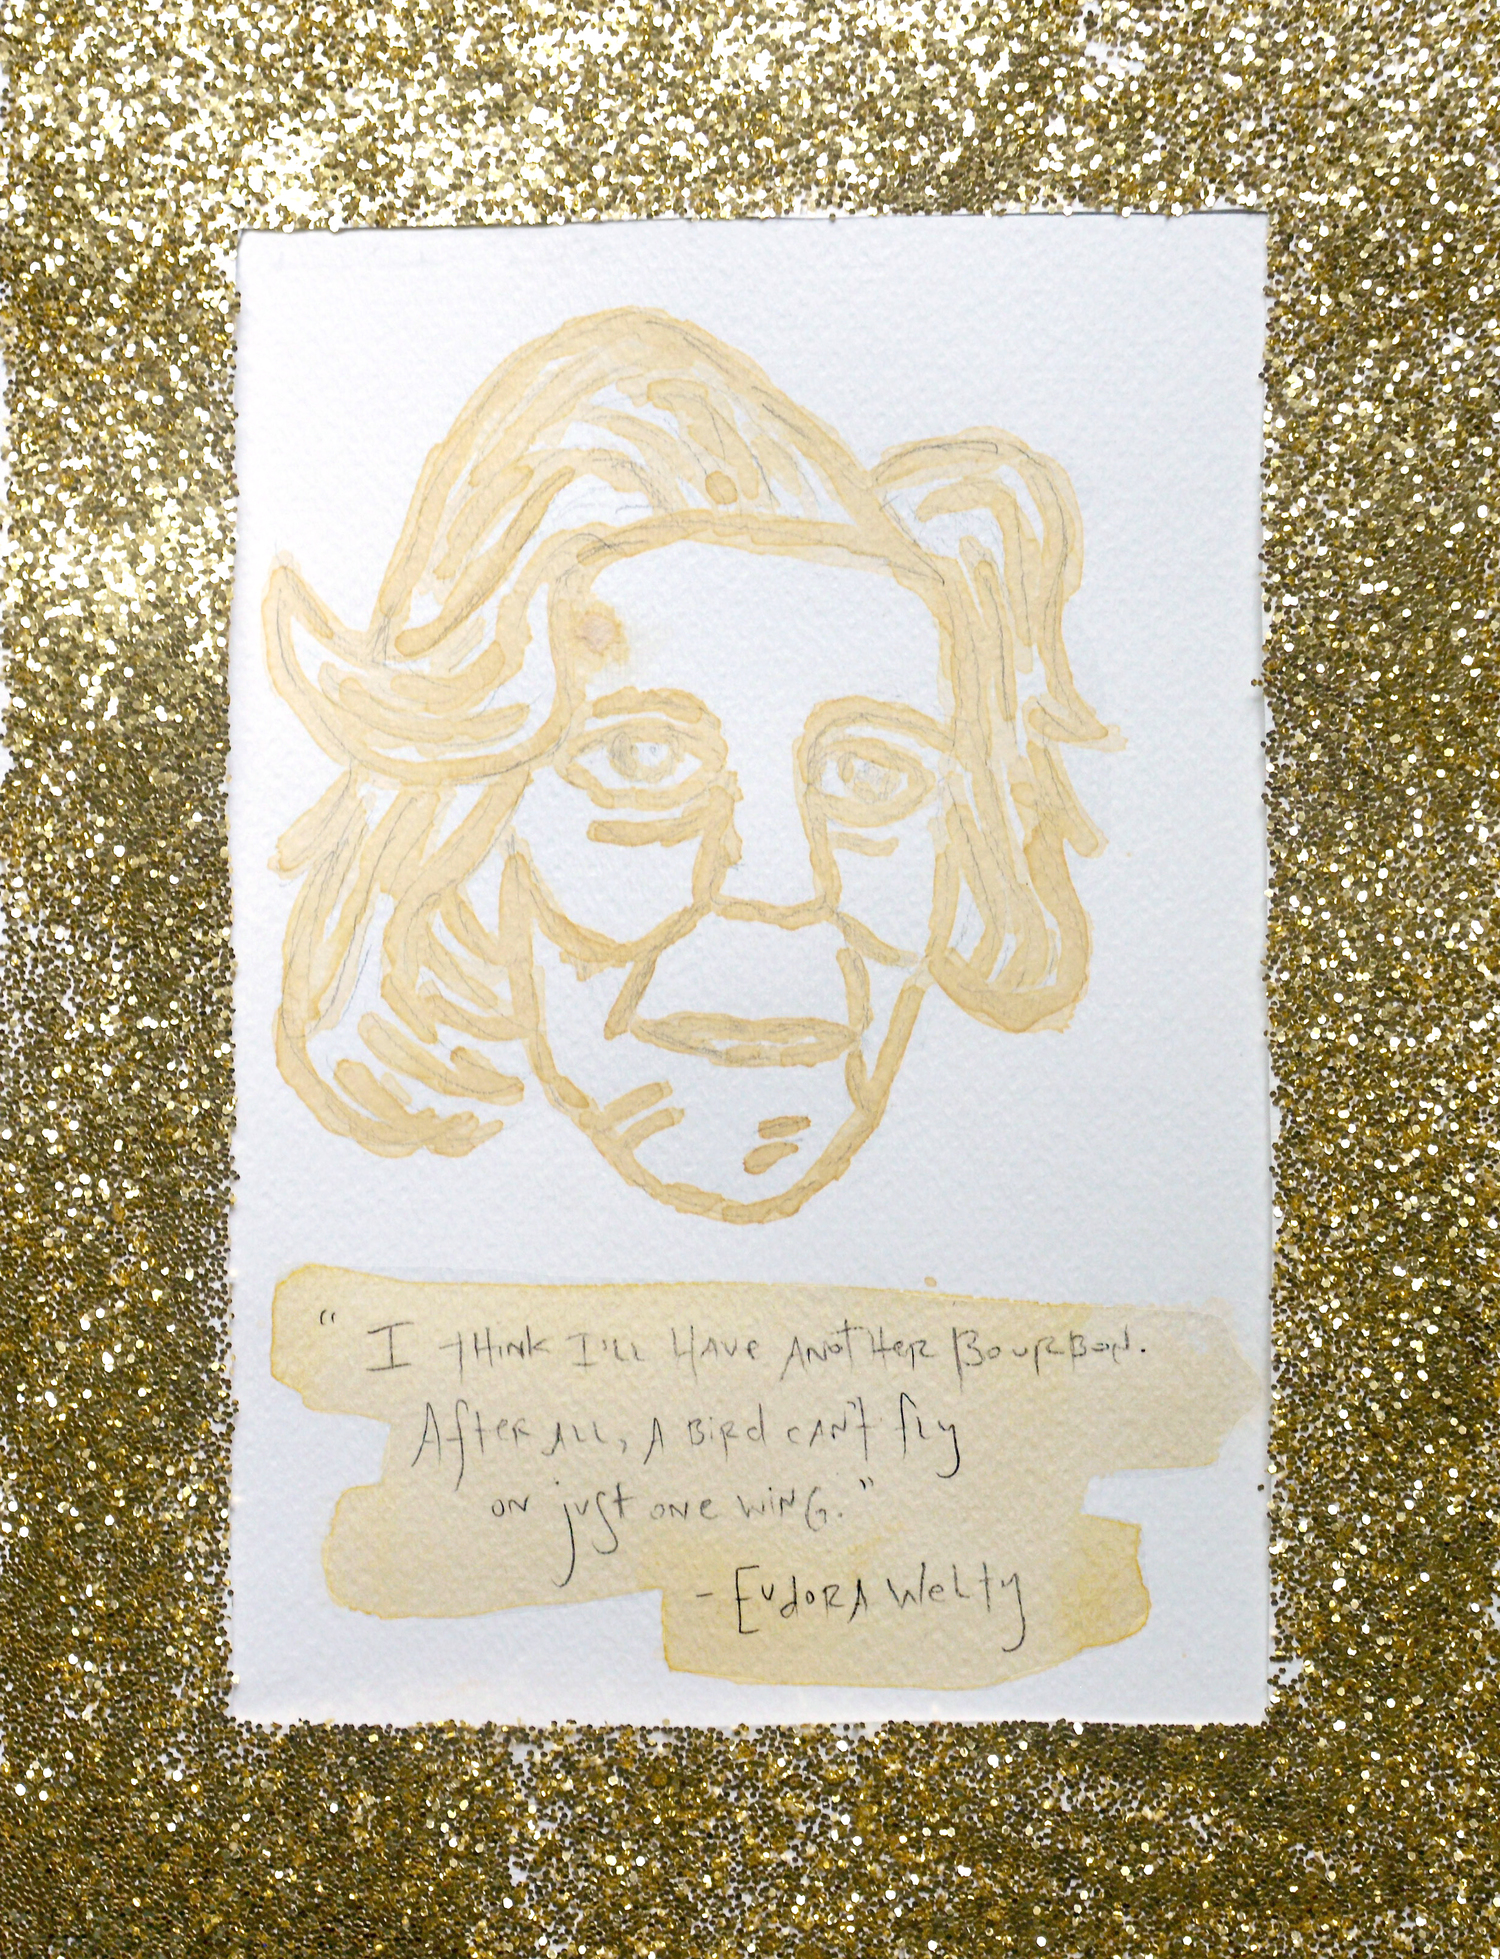 “ I think I'll Have Another Bourbon.
After All, A Bird can't fly
on just one wing.”
- Eudora Welty